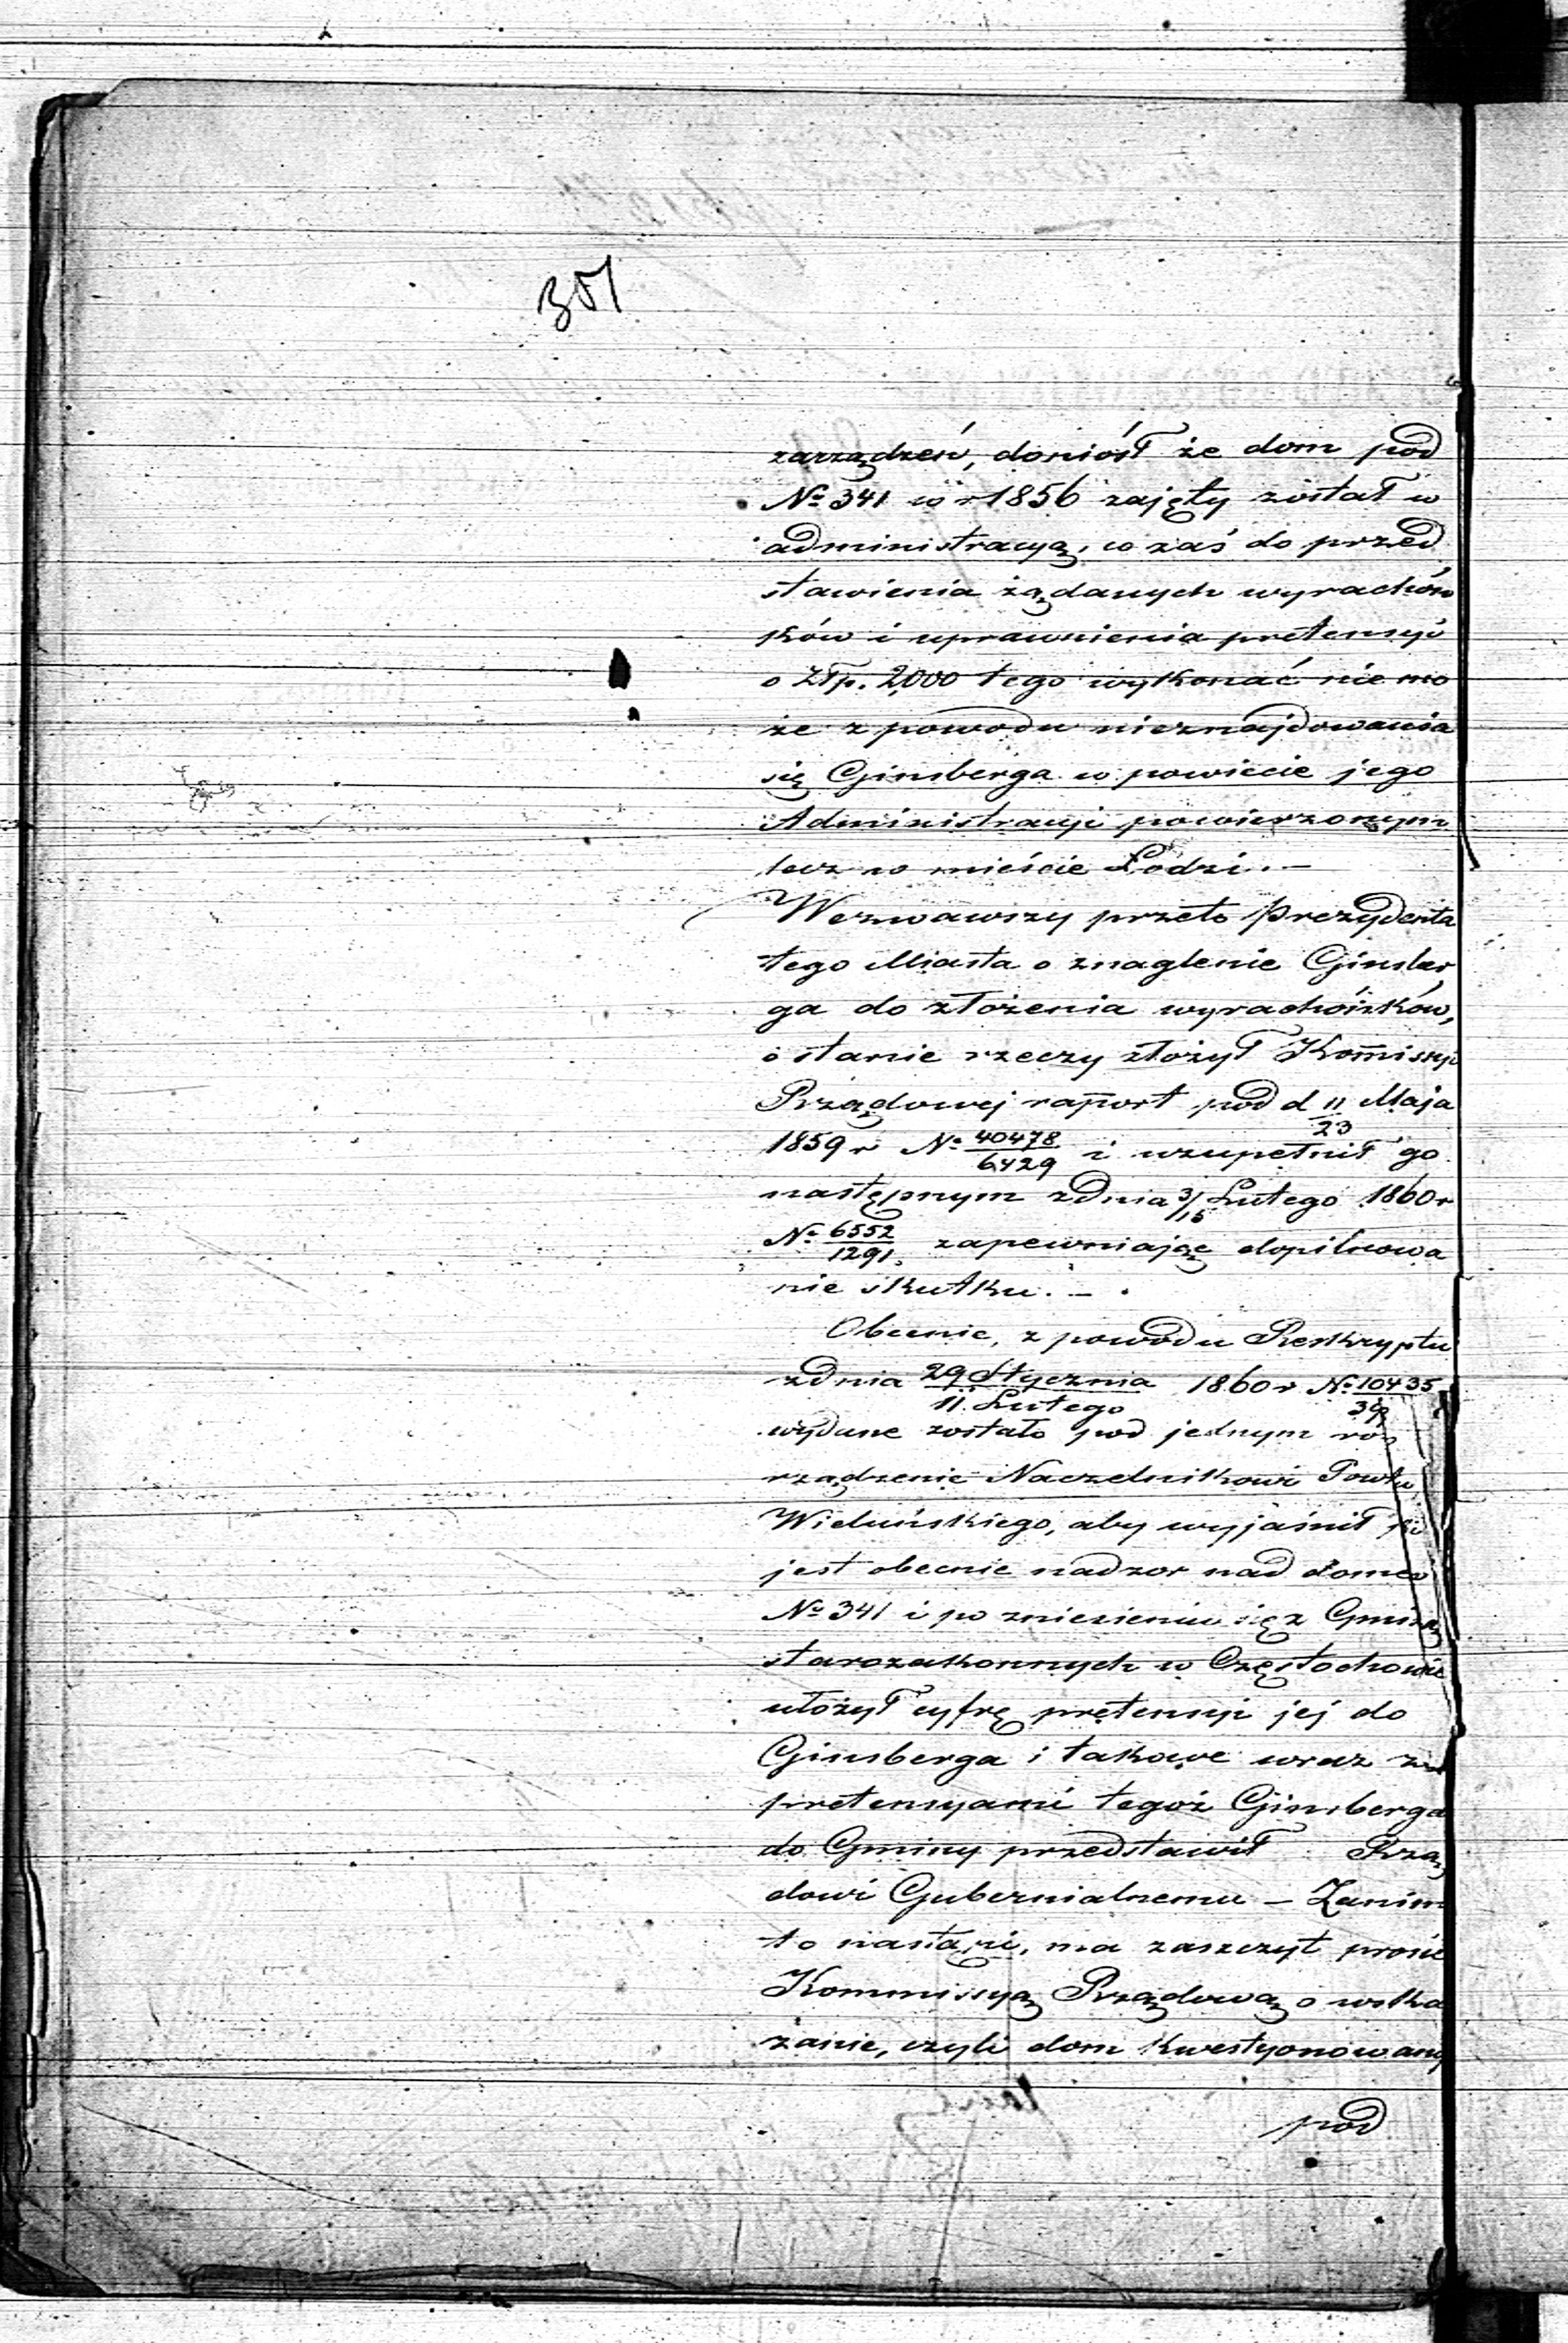 301
zarządzeń, doniósł że dom pod
№ 341 w r 1856 zajęty został w
administracyą, co zaś do przed
stawienia żądanych wyrachów
ków i uprawnienia pretensyi
o Złp. 2,000 tego wykonać nie mo
że z powodu nieznajdowania
się Ginsberga w powiecie jego
Administracyi powierzonym
lecz w mieście Łodzi. —
Wezwawszy przeto Prezydenta
tego Miasta o znaglenie Ginsber
ga do złożenia wyrachówków,
o stanie rzeczy złożył Kom̄issyi
Rządowej raport pod d 11/23 Maja
1859 r № 40478/6429 i uzupełnił go
następnym z dnia 3/15 Lutego 1860 r
№ 6552/1291, zapewniając dopilnowa
nie skutku. —
Obecnie, z powodu Reskryptu
z dnia 29 Stycznia/11 Lutego 1860 r № 10435
wydane zostało pod jednym roz
rządzenie Naczelnikowi Powtu
Wieluńskiego, aby wyjaśnił
jest obecnie nadzor nad domem
№ 341 i po zniesieniu się z Gminą
starozakonnych w Częstochowie
ułożył cyfrę pretensyi jej do
Ginsberga i takowe wraz z
pretensyami tegoż Ginsberga
do Gminy przedstawił Rzą
dowi Gubernialnemu — Zanim
to nastąpi, ma zaszczyt prosić
Kommissyą Rządową o wska
zanie, czyli dom kwestyonowany
pod